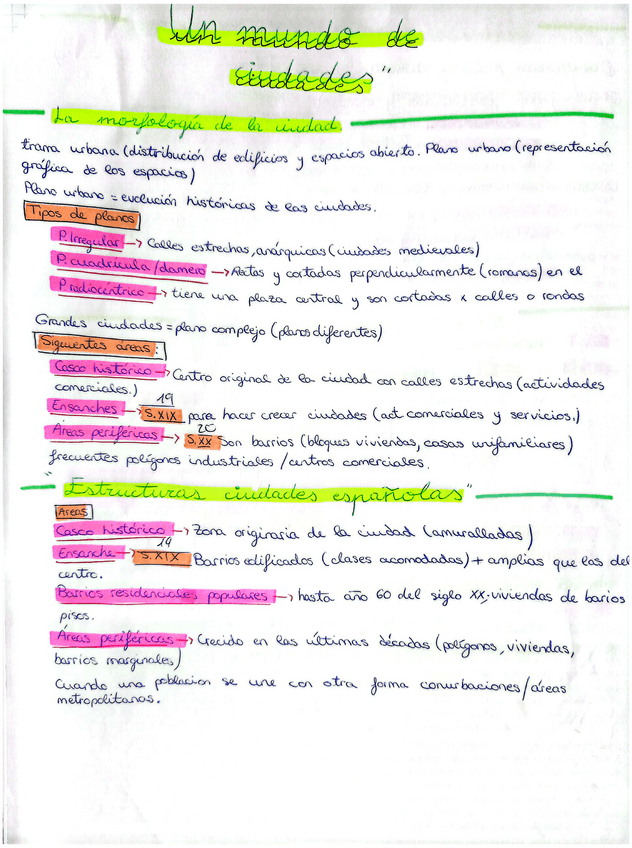 Un mundo de
ciudades"
La morfología de la ciudad.
trama urbana (distribución de edificios y espacios abierto. Plano urbano (representación
gráfica de los espacios)
Plano urbano = evolución históricas de las ciudades.
Tipos de planos
P. Irregular → Calles estrechas, anárquicas (ciudades medievales)
P. cuadrícula/damero → Rectas y cortadas perpendicularmente (romanos) en el
P radiocéntrico → tiene una plaza central y son cortadas x calles o rondas
Grandes ciudades = plano complejo (planos diferentes)
Siguientes áreas:
Casco histórico → Centro original de la ciudad con calles estrechas (actividades
comerciales.)
19
Ensanches → S.XIX para hacer crecer ciudades (act comerciales y servicios.)
20
Áreas periféricas → S.XX Son barrios (bloques viviendas, casas unifamiliares)
frecuentes polígonos industriales / centros comerciales.
"Estructuras ciudades españolas"
Areas
Casco histórico → Zona originaria de la ciudad (amuralladas)
19
Ensanche → S.XIX Barrios edificados (clases acomodadas) + amplias que las del
centro.
Barrios residenciales populares → hasta año 60 del siglo XX; viviendas de barios
pisos.
Áreas periféricas → Crecido en las últimas décadas (polígonos, viviendas,
barrios marginales)
Cuando una poblacion se une con otra forma conurbaciones / áreas
metropolitanas.